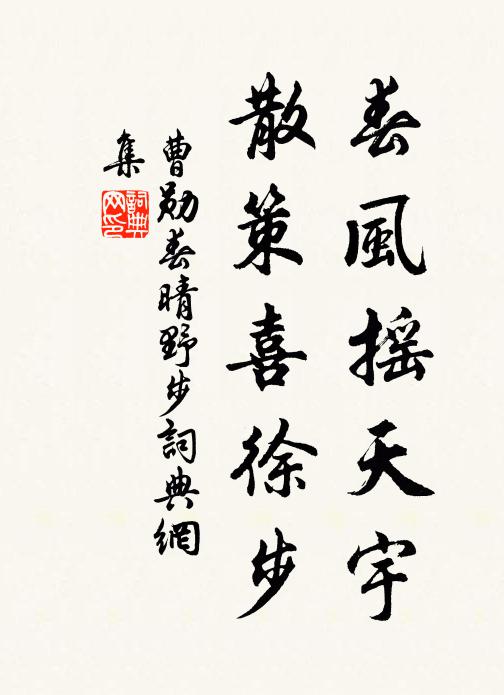 春風摇天宇
散策喜徐步
曹勛春晴野步詞典網
集
詞典网印